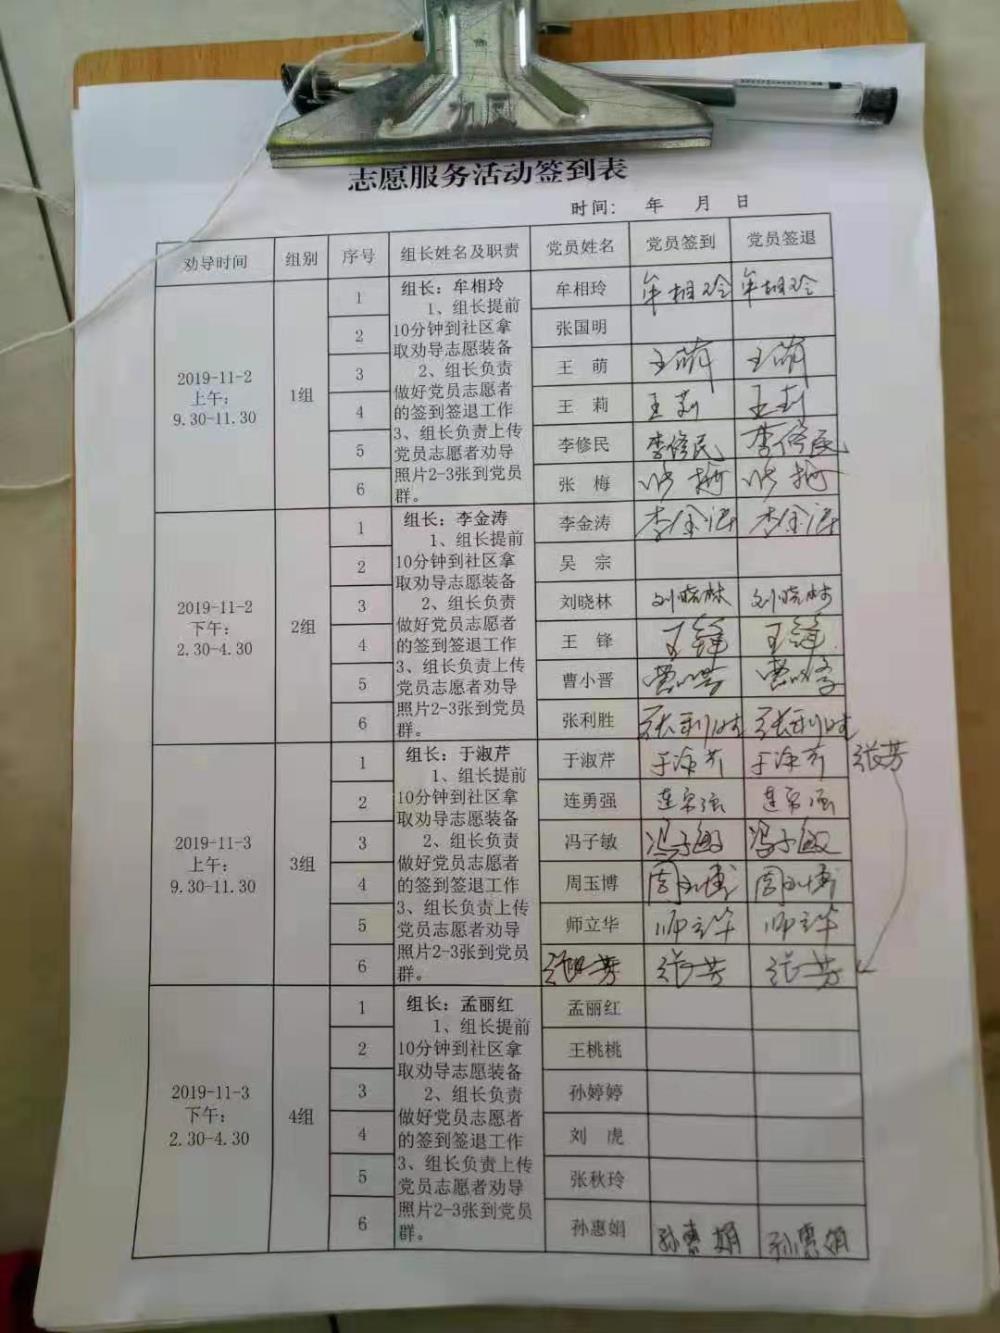 志愿服务活动签到表
时间： 年 月 日
劝导时间 组别 序号 组长姓名及职责 党员姓名 党员签到 党员签退
2019-11-2
上午：
9.30-11.30
1组
组长：牟相玲
1、组长提前
10分钟到社区拿
取劝导志愿装备
2、组长负责
做好党员志愿者
的签到签退工作
3、组长负责上传
党员志愿者劝导
照片2-3张到党员
群。
1 牟相玲 牟相玲 牟相玲
2 张国明
3 王 萌 王萌 王萌
4 王 莉 王莉 王莉
5 李修民 李修民 李修民
6 张 梅 张梅 张梅
2019-11-2
下午：
2.30-4.30
2组
组长：李金涛
1、组长提前
10分钟到社区拿
取劝导志愿装备
2、组长负责
做好党员志愿者
的签到签退工作
3、组长负责上传
党员志愿者劝导
照片2-3张到党员
群。
1 李金涛 李金涛 李金涛
2 吴 宗
3 刘晓林 刘晓林 刘晓林
4 王 锋 王锋 王锋
5 曹小晋
6 张利胜 张利胜 张利胜
2019-11-3
上午：
9.30-11.30
3组
组长：于淑芹
1、组长提前
10分钟到社区拿
取劝导志愿装备
2、组长负责
做好党员志愿者
的签到签退工作
3、组长负责上传
党员志愿者劝导
照片2-3张到党员
群。
1 于淑芹 于淑芹 于淑芹 张芳
2 连勇强
3 冯子敏 冯子敏 冯子敏
4 周玉博 周玉博 周玉博
5 师立华 师立华 师立华
6 张芳 张芳 张芳
2019-11-3
下午：
2.30-4.30
4组
组长：孟丽红
1、组长提前
10分钟到社区拿
取劝导志愿装备
2、组长负责
做好党员志愿者
的签到签退工作
3、组长负责上传
党员志愿者劝导
照片2-3张到党员
群。
1 孟丽红
2 王桃桃
3 孙婷婷
4 刘 虎
5 张秋玲
6 孙惠娟 孙惠娟 孙惠娟